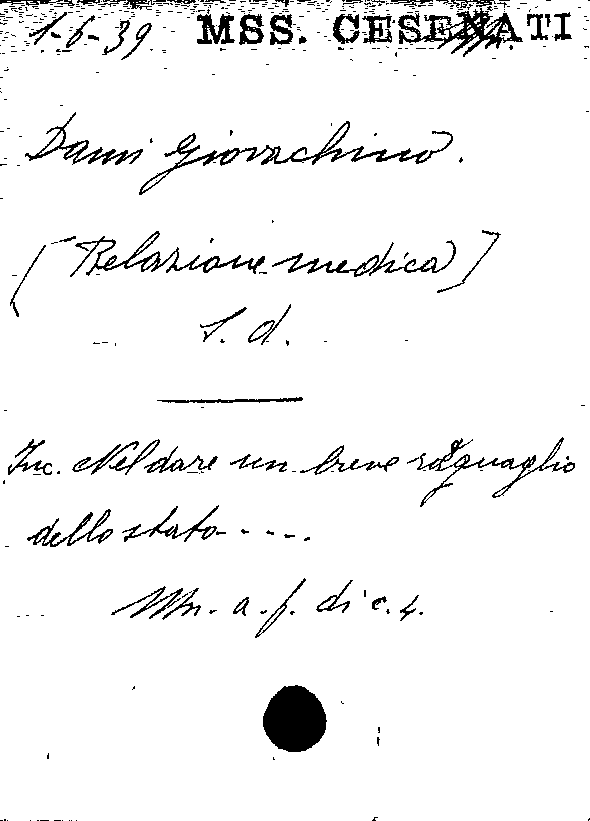 1-6-39 MSS. CESENATI
Dami Giovachino.
[Relazione medica]
S. d.
Inc. Nel dare un breve ragguaglio
dello stato ....
Mn. a. f. di c. 4.